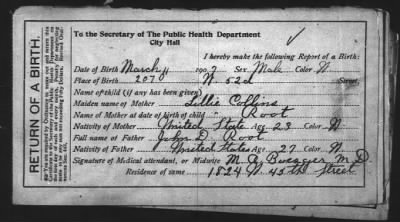 To the Secretary of The Public Health Department
City Hall
I hereby make the following Report of a Birth:
Date of Birth March 11 1903 Sex Male Color W.
Place of Birth 2070 W. 52d Street
Name of child (if any has been given)
Maiden name of Mother Lillie Collins
Name of Mother at date of birth of child " Root
Nativity of Mother United State Age 23 Color W
Full name of Father John D. Root
Nativity of Father United States Age 27 Color W
Signature of Medical attendant, or Midwife M. A. M D
Residence of same 1824 W. 45th Street
RETURN OF A BIRTH.